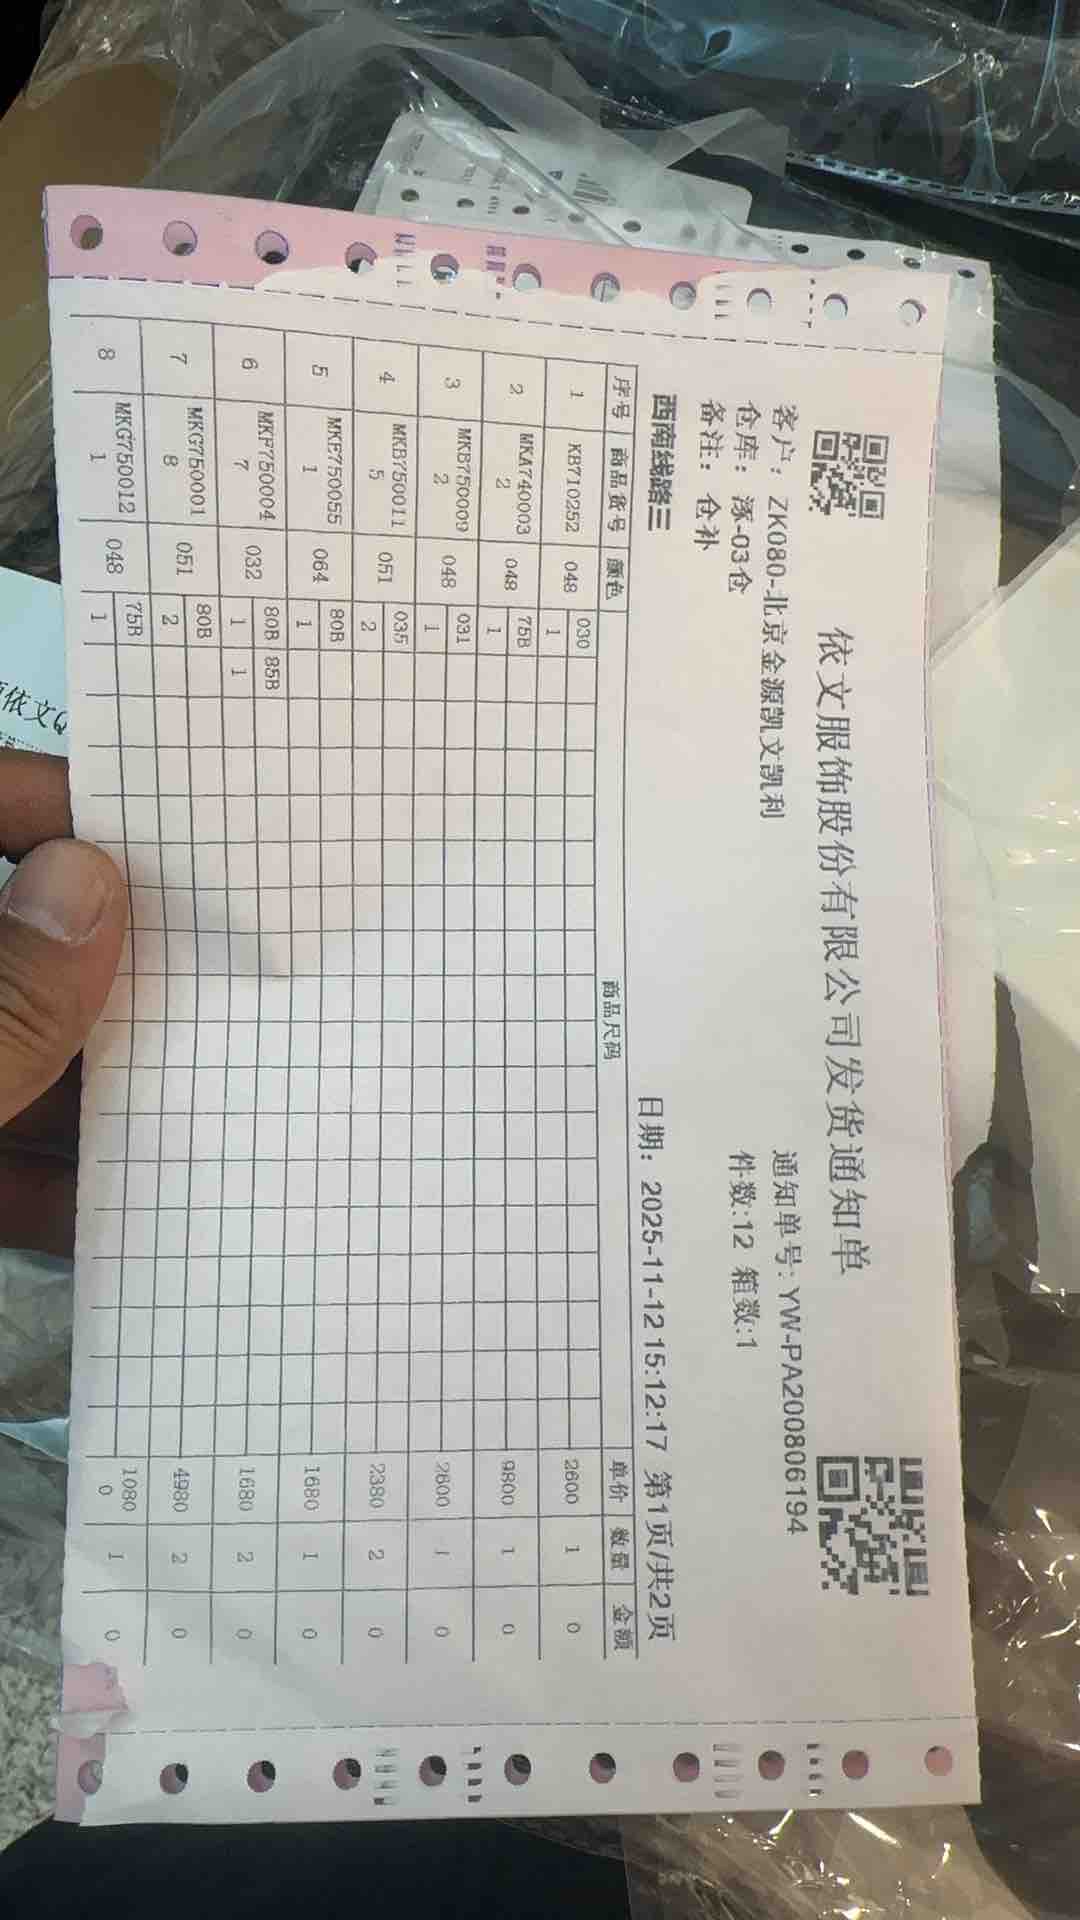 依文服饰股份有限公司发货通知单
客户: ZK080-北京金源凯文凯利 通知单号: YW-PA200806194
仓库: 涿-03仓 件数:12 箱数:1
备注: 仓补
西南线路三 日期: 2025-11-12 15:12:17 第1页/共2页
序号 商品货号 颜色 商品尺码 单价 数量 金额
1 KB710252 048 030 1 2600 1 0
2 MKA7400032 048 75B 1 9800 1 0
3 MKB7500092 048 031 1 2600 1 0
4 MKB7500115 051 035 2 2380 2 0
5 MKE7500551 064 80B 1 1680 1 0
6 MKF7500047 032 80B 1 85B 1 1680 2 0
7 MKG7500018 051 80B 2 4980 2 0
8 MKG7500121 048 75B 1 10800 1 0
依文